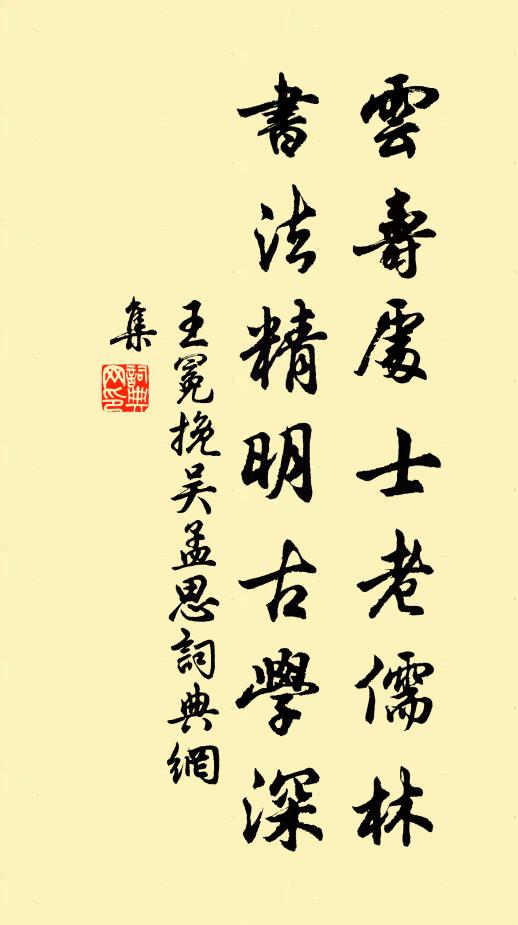 雲壽處士老儒林
書法精明古學深
王冕挽吴孟思詞典網
集
詞典
网印